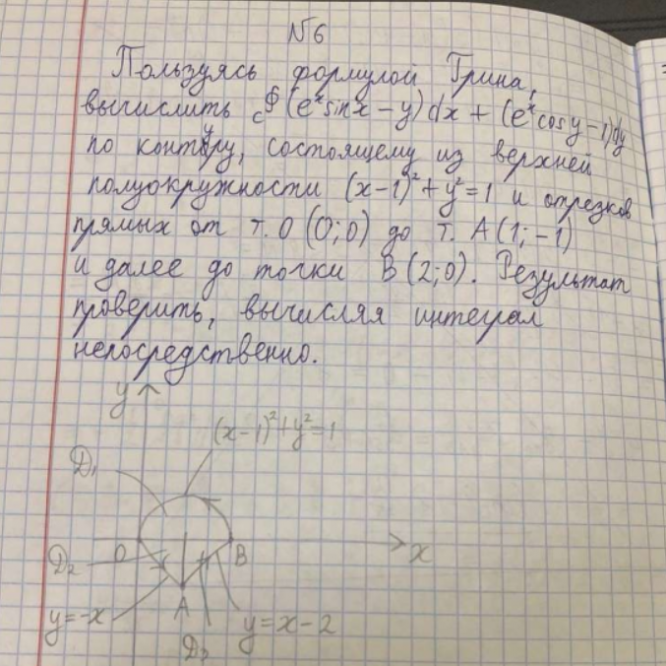 №6
Пользуясь формулой Грина,
вычислить c∮(eˣsinx-y)dx+(eˣcosy-1)dy
по контуру, состоящему из верхней
полуокружности (x-1)²+y²=1 и отрезков
прямых от т. O (0;0) до т. A(1;-1)
и далее до точки B(2;0). Результат
проверить, вычисляя интеграл
непосредственно.
y
(x-1)²+y²=1
D₁
D₂ O B x
A
y=-x y=x-2
D₃